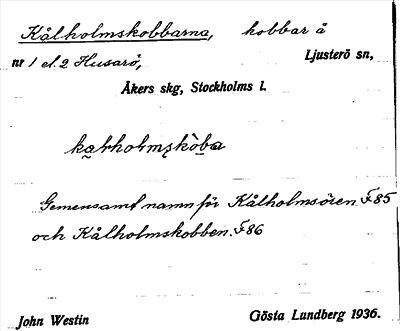 Kålholmskobbarna, kobbar å
nr 1 el. 2 Husarö, Ljusterö sn,
Åkers skg, Stockholms l.
Gemensamt namn för Kålholmsören F85
och Kålholmskobben. F86
John Westin Gösta Lundberg 1936.